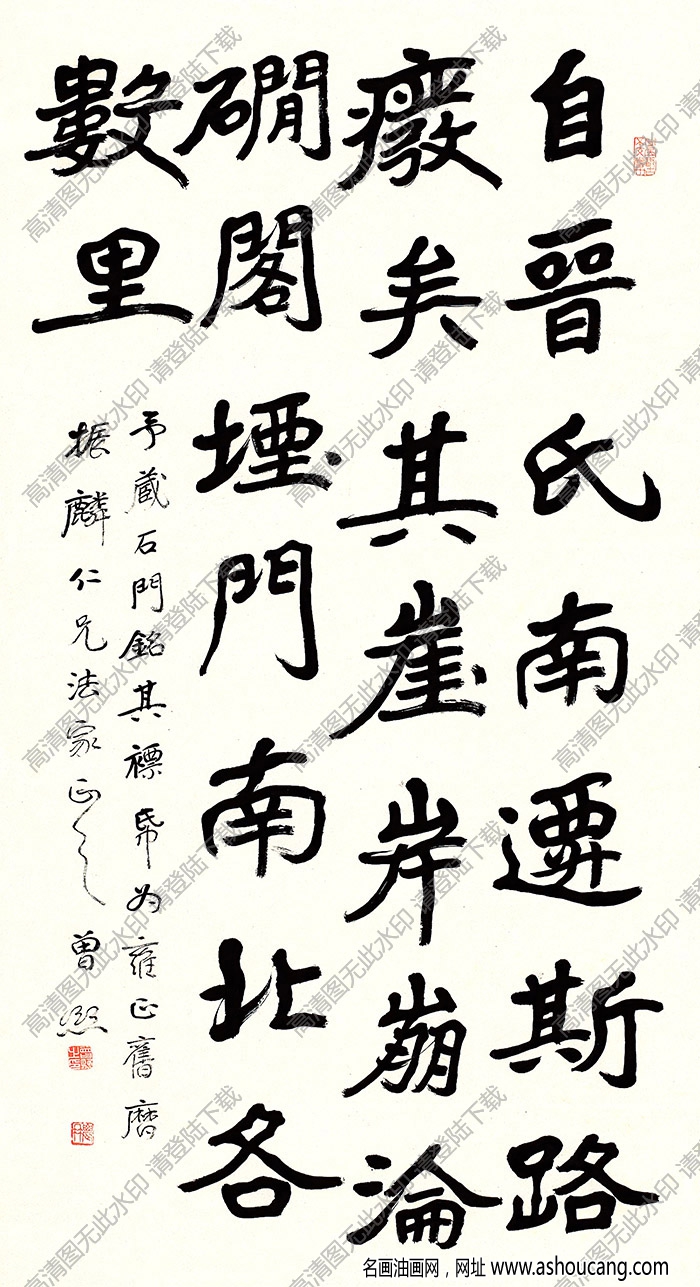 自晉氏南遷斯路
癈矣其崖岸崩淪
磵閣堙門南北各
數里
予藏石門銘其褾帋为雍正舊曆
振麟仁兄法家正之 曾熙
名画油画网，网址 www.ashoucang.com
高清图无此水印 请登陆下载